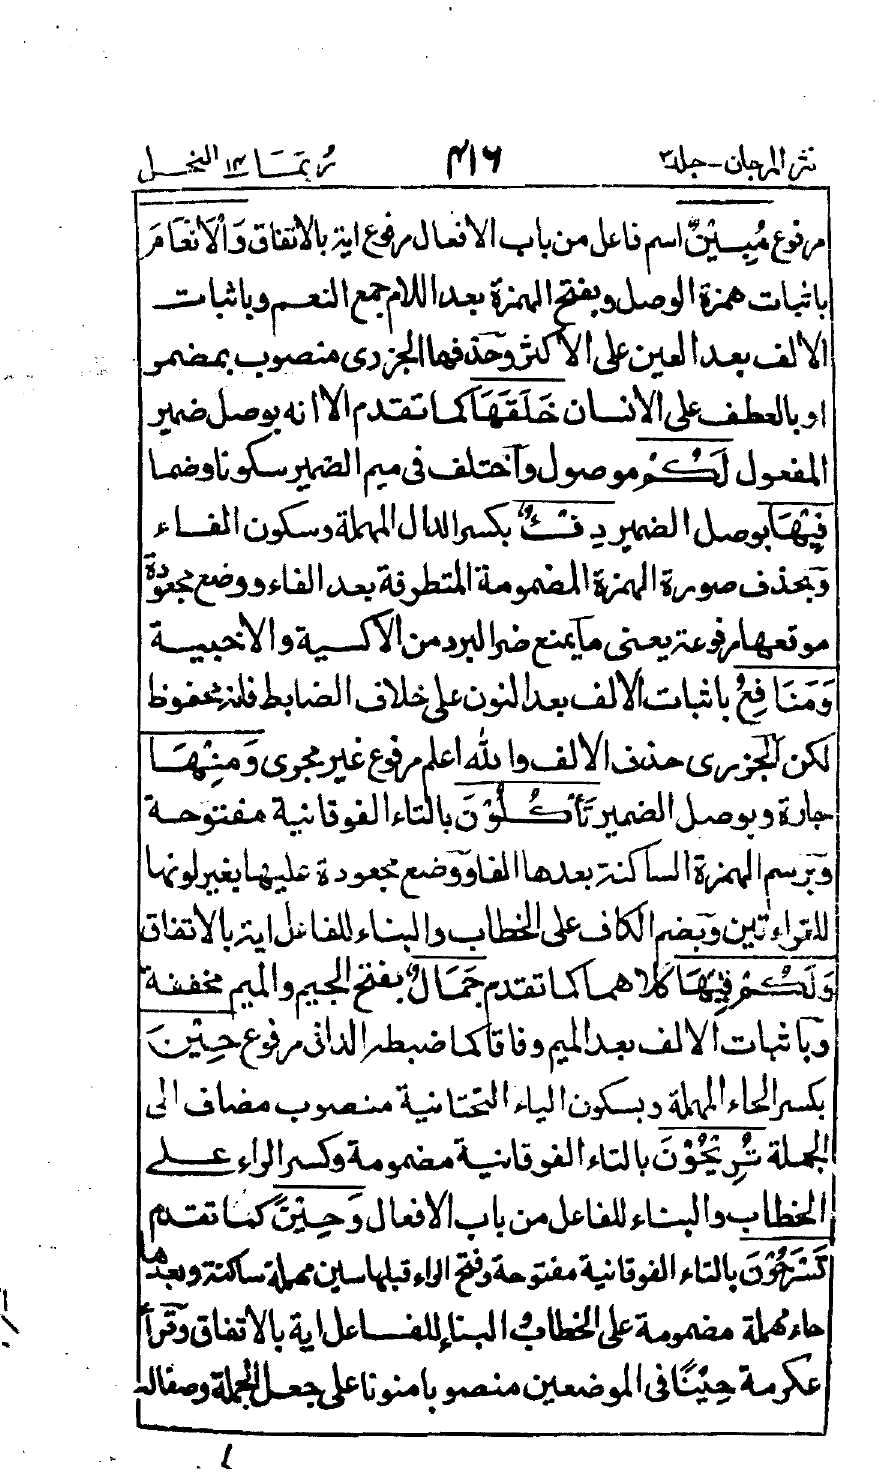 نثر المرجان - جلد ۳ ۴۱۶ ربما ۱۴ النحل
مرفوع مُبِيْنٌ اسم فاعل من باب الافعال مرفوع اية بالاتفاق وَالْاَنْعَامَ
باثبات همزة الوصل وبفتح الهمزة بعد اللام جمع النعم وباثبات
الالف بعد العين على الأكثر وحذفها الجزرى منصوب بمضمر
او بالعطف على الانسان خَلَقَهَا كما تقدم الا انه بوصل ضمير
المفعول لَكُمْ موصول وآختلف فى ميم الضمير سكونا وضما
فِيْهَا بوصل الضمير دِفْءٌ بكسر الدال المهملة وسكون الفاء
وبحذف صورة الهمزة المضمومة المتطرفة بعد الفاء ووضع مجعودة
موقعها مرفوعة يعنى ما يمنع ضر البرد من الأكسية والاخبية
وَمَنَافِعُ باثبات الالف بعد النون على خلاف الضابط فانه محفوظ
لكن الجزرى حذف الالف والله اعلم مرفوع غير مجرى وَمِنْهَا
جارة وبوصل الضمير تَأْكُلُوْنَ بالتاء الفوقانية مفتوحة
وبرسم الهمزة الساكنة بعدها الفا ووضع مجعودة عليها بغير لونها
للقراءتين وبضم الكاف على الخطاب والبناء للفاعل اية بالاتفاق
وَلَكُمْ فِيْهَا كلاهما كما تقدم جَمَالٌ بفتح الجيم والميم مخففة
وباثبات الالف بعد الميم وفاقا كما ضبطه الدانى مرفوع حِيْنَ
بكسر الحاء المهملة وبسكون الياء التحتانية منصوب مضاف الى
الجملة تُرِيْحُوْنَ بالتاء الفوقانية مضمومة وكسر الراء على
الخطاب والبناء للفاعل من باب الافعال وَحِيْنَ كما تقدم
تَسْرَحُوْنَ بالتاء الفوقانية مفتوحة وفتح الراء قبلها سين مهملة ساكنة وبعدها
حاء مهملة مضمومة على الخطاب والبناء للفاعل اية بالاتفاق وقرأ
عكرمة حِيْنًا فى الموضعين منصوبا منونا على جعل الجملة وصفا له